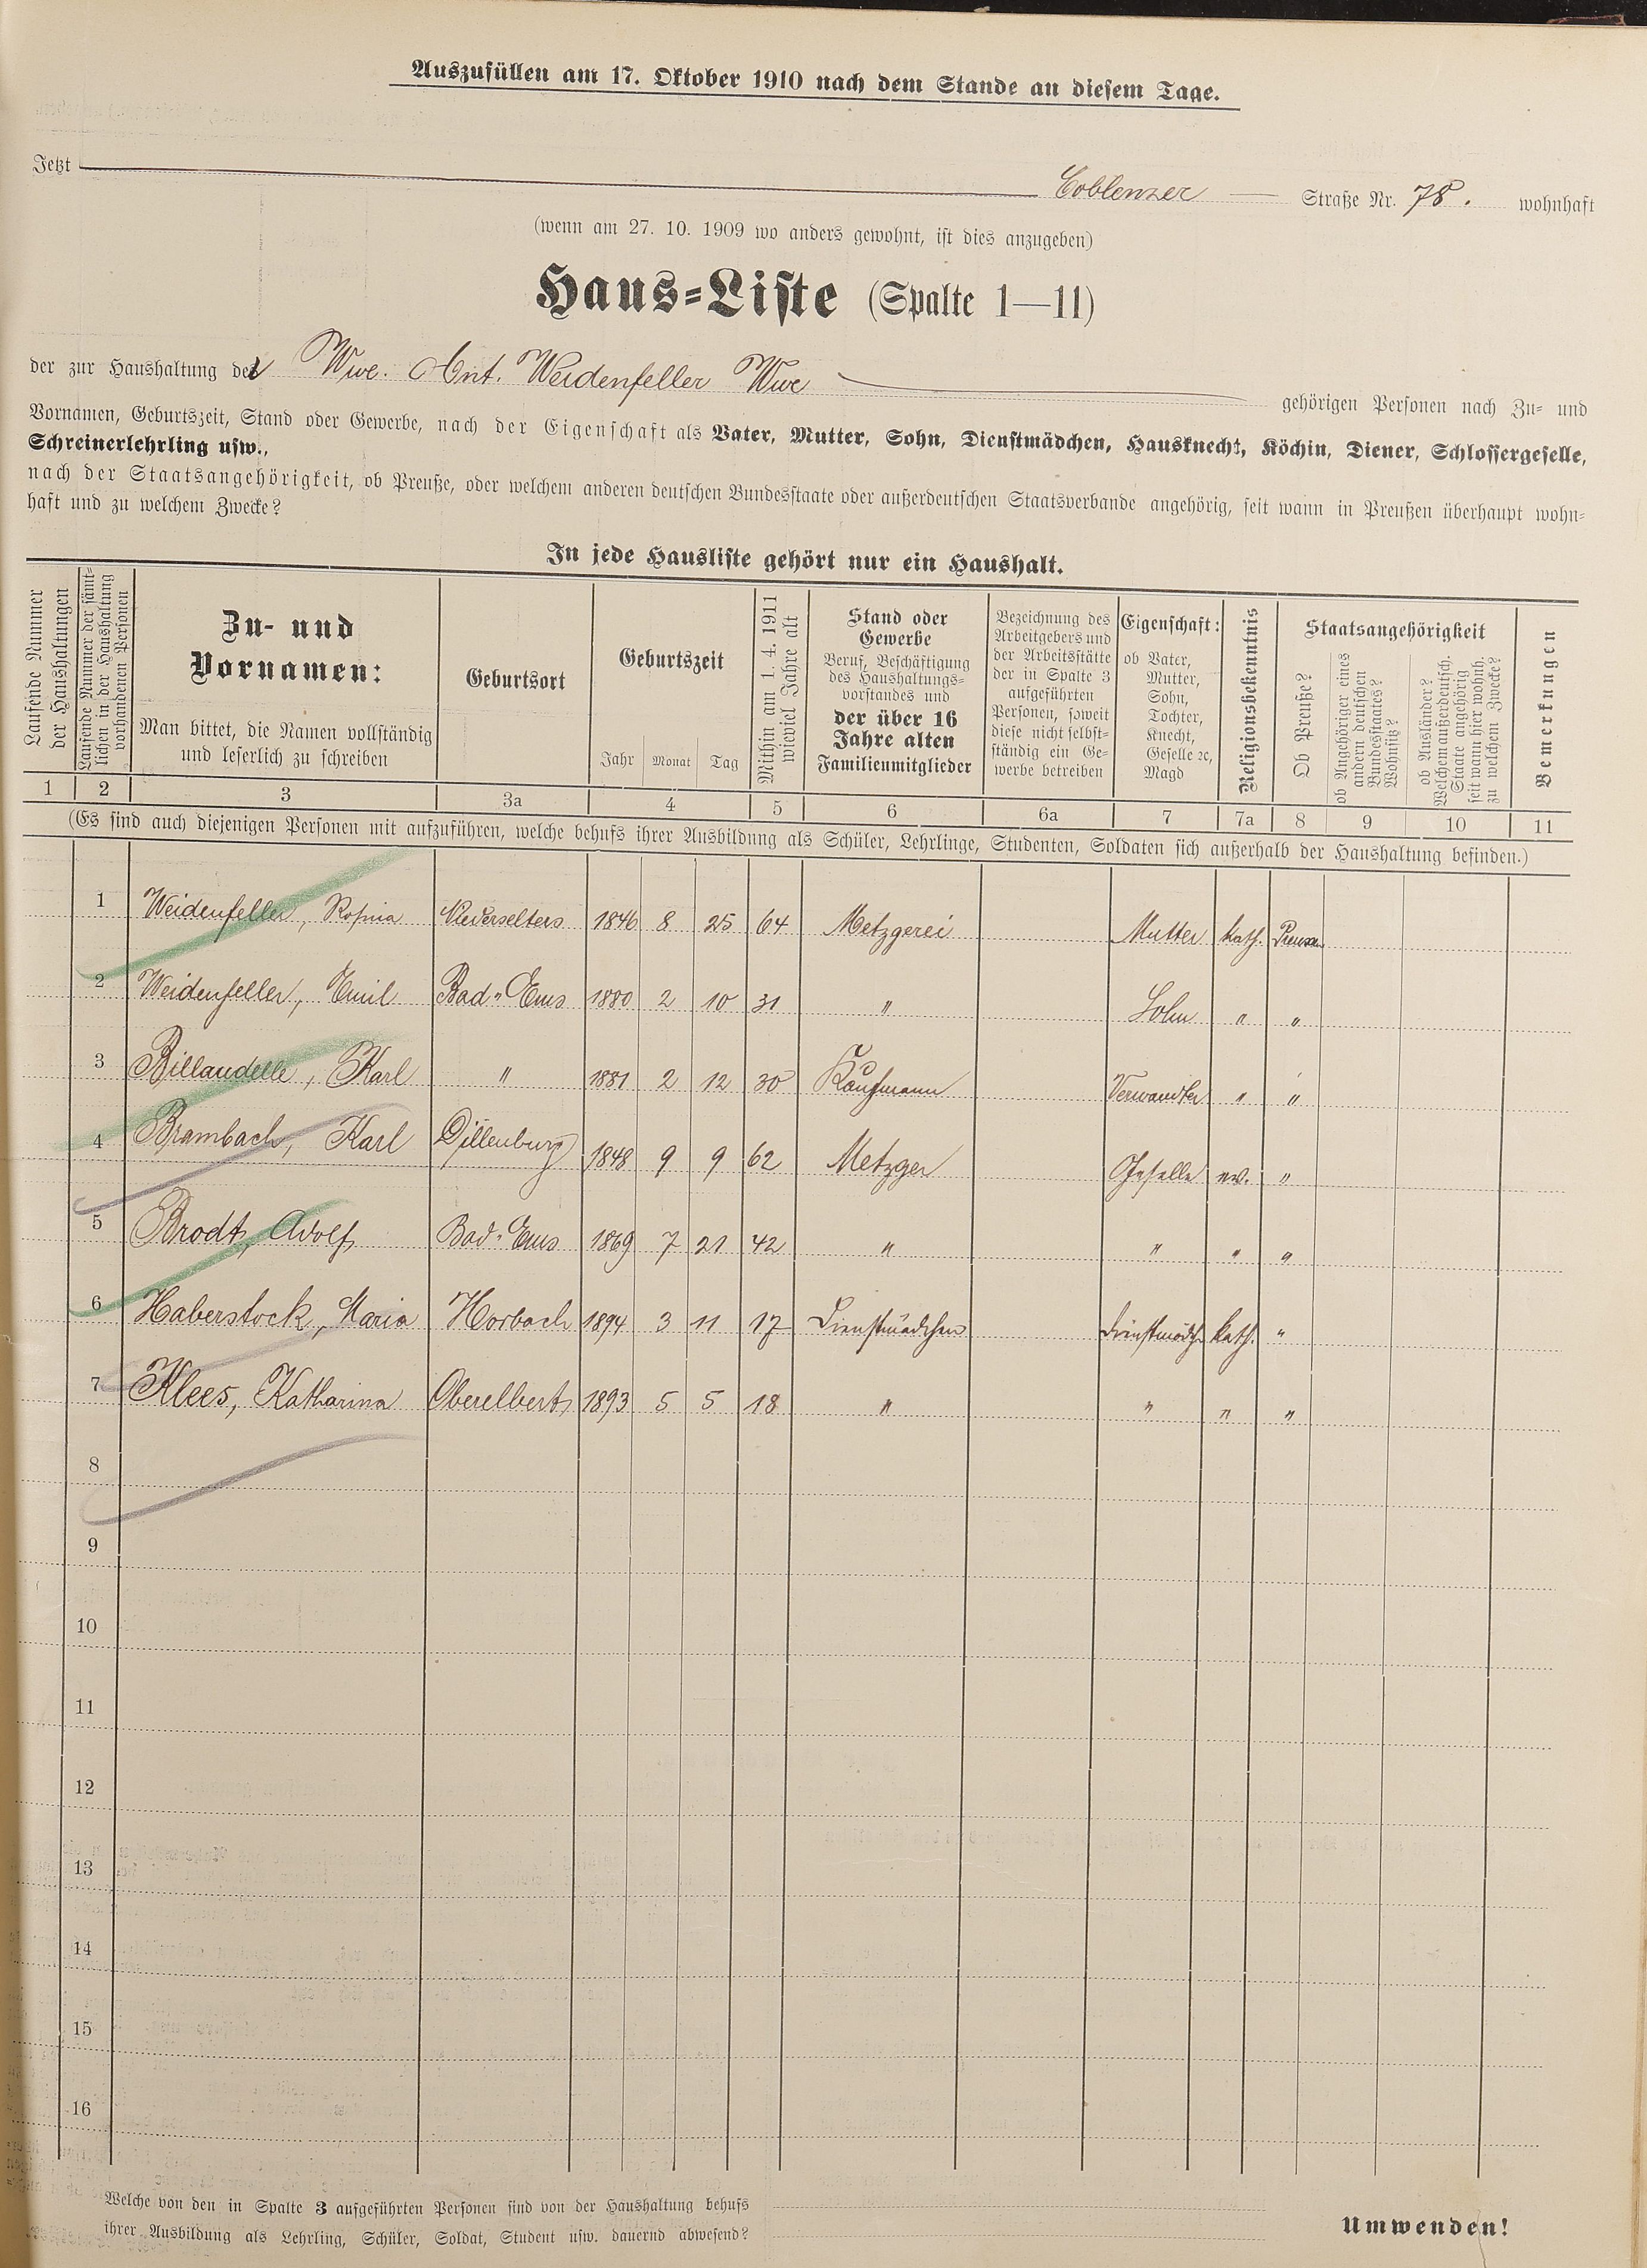 Auszufüllen am 17. Oktober 1910 nach dem Stande an diesem Tage.
Jetzt Coblenzer Straße Nr. 78. wohnhaft
(wenn am 27. 10. 1909 wo anders gewohnt, ist dies anzugeben)
Haus-Liste (Spalte 1—11)
der zur Haushaltung der Wwe. Ant. Weidenfeller Wwe gehörigen Personen nach Zu- und
Vornamen, Geburtszeit, Stand oder Gewerbe, nach der Eigenschaft als Vater, Mutter, Sohn, Dienstmädchen, Hausknecht, Köchin, Diener, Schlossergeselle,
Schreinerlehrling usw.,
nach der Staatsangehörigkeit, ob Preuße, oder welchem anderen deutschen Bundesstaate oder außerdeutschen Staatsverbande angehörig, seit wann in Preußen überhaupt wohn-
haft und zu welchem Zwecke?
In jede Hausliste gehört nur ein Haushalt.
Laufende Nummer
der Haushaltungen
Laufende Nummer der sämt-
lichen in der Haushaltung
vorhandenen Personen
Zu- und
Vornamen:
Man bittet, die Namen vollständig
und leserlich zu schreiben
Geburtsort
Geburtszeit
Jahr Monat Tag
Mithin am 1. 4. 1911
wieviel Jahre alt
Stand oder
Gewerbe
Beruf, Beschäftigung
des Haushaltungs-
vorstandes und
der über 16
Jahre alten
Familienmitglieder
Bezeichnung des
Arbeitgebers und
der Arbeitsstätte
der in Spalte 3
aufgeführten
Personen, soweit
diese nicht selbst-
ständig ein Ge-
werbe betreiben
Eigenschaft:
ob Vater,
Mutter,
Sohn,
Tochter,
Knecht,
Geselle ec,
Magd
Religionsbekenntnis
Staatsangehörigkeit
Ob Preuße?
ob Angehöriger eines
andern deutschen
Bundesstaates?
Wohnsitz?
ob Ausländer?
Welchem außerdeutsch.
Staate angehörig
seit wann hier wohnh.
zu welchem Zwecke?
Bemerkungen
1 2 3 3a 4 5 6 6a 7 7a 8 9 10 11
(Es sind auch diejenigen Personen mit aufzuführen, welche behufs ihrer Ausbildung als Schüler, Lehrlinge, Studenten, Soldaten sich außerhalb der Haushaltung befinden.)
1 Weidenfeller, Niederselters 1846 8 25 64 Metzgerei Mutter kath.
2 Weidenfeller, Emil Bad-Ems 1880 2 10 31 " Sohn " "
3 Billaudelle, Karl " 1881 2 12 30 Kaufmann Verwandter " "
4 Brambach, Karl Dillenburg 1848 9 9 62 Metzger Geselle ev. "
5 Brodt, Adolf Bad-Ems 1869 7 21 42 " " " "
6 Haberstock, Maria Horbach 1894 3 11 17 Dienstmädchen Dienstmädch kath. "
7 Klees, Katharina Oberelbert 1893 5 5 18 " " " "
8
9
10
11
12
13
14
15
16
Welche von den in Spalte 3 aufgeführten Personen sind von der Haushaltung behufs
ihrer Ausbildung als Lehrling, Schüler, Soldat, Student usw. dauernd abwesend?
Umwenden!